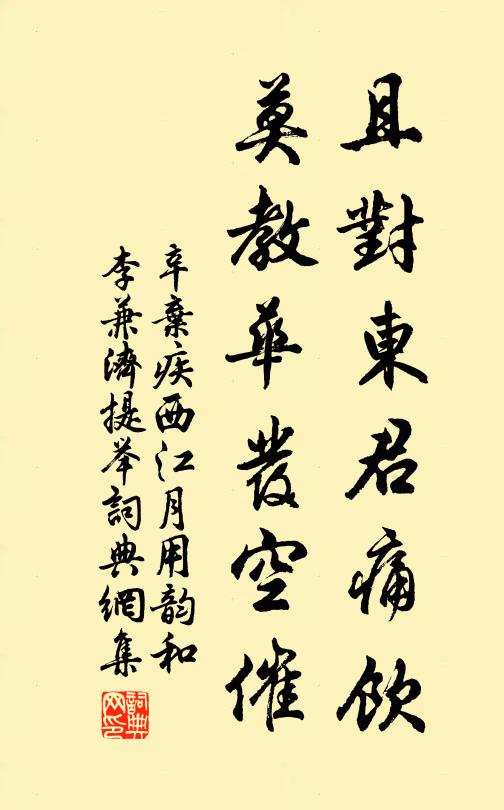 且對東君痛飲
莫教華發空催
辛棄疾西江月用韵和
李兼濟提举詞典網集
詞典网印